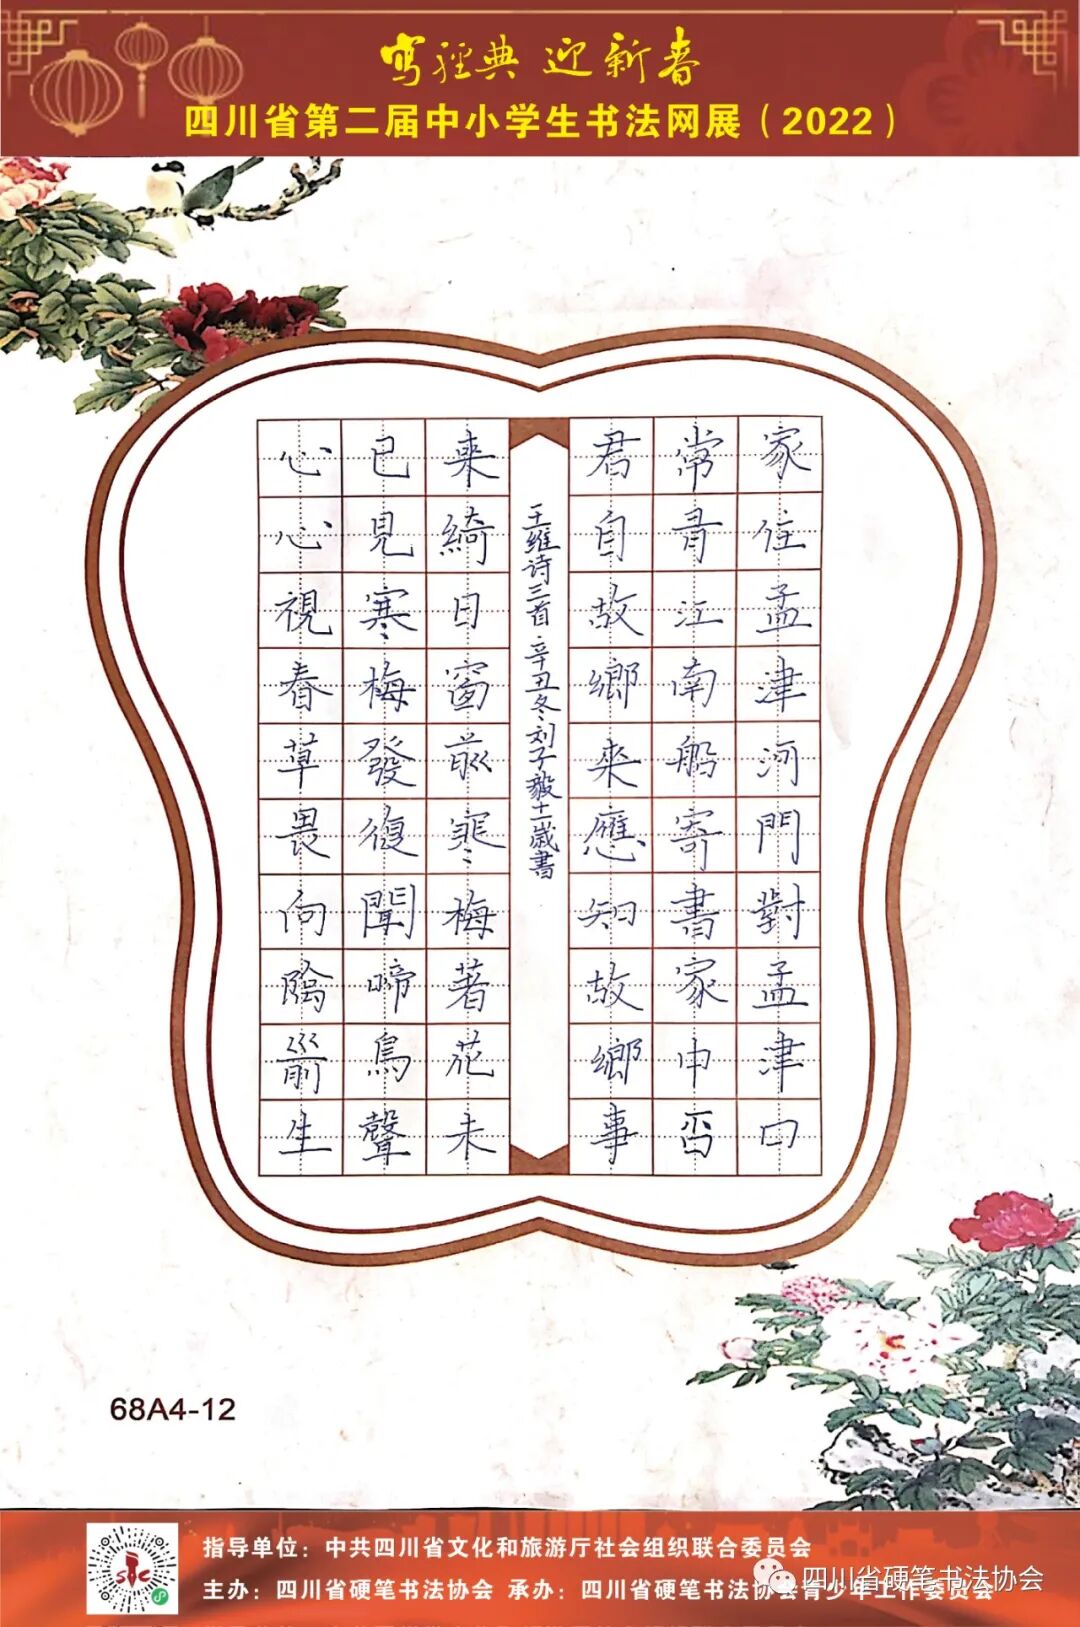 写經典 迎新春
四川省第二届中小学生书法网展（2022）
家住孟津河門對孟津口
常有江南船寄書家中否
君自故鄉來應知故鄉事
王維诗三首 辛丑冬刘子毅十二歲書
來綺日窗前寒梅著花未
已見寒梅發復聞啼鳥聲
心心視春草畏向陰前生
68A4-12
指导单位：中共四川省文化和旅游厅社会组织联合委员会
主办：四川省硬笔书法协会 承办：四川省硬笔书法协会青少年工作委员会
四川省硬笔书法协会